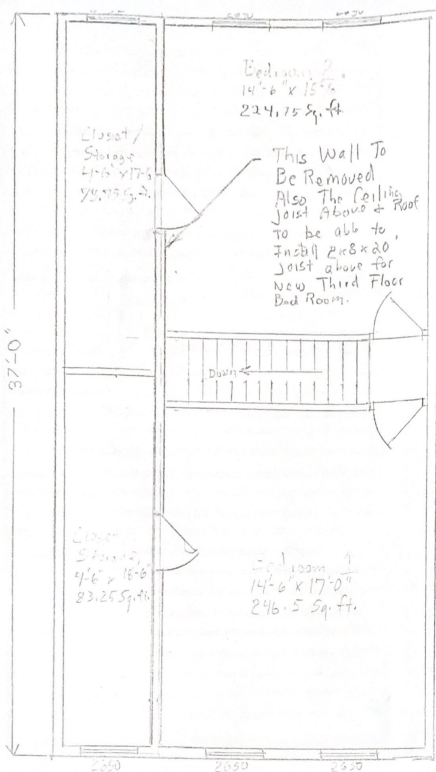 2650
Bedroom 2
14'-6" x 15'-6
224.75 Sq. ft
Closet /
Storage
4'-6 x 17'-6
This Wall To
Be Removed
Also The Ceiling
Joist Above & Roof
To be able to
Install 2x8x20
Joist above for
New Third Floor
Bed Room.
37'-0"
Down
Closet
Storage
4'-6" x 18'-6"
83.25 Sq. ft.
Bedroom 1
14'-6" x 17'-0"
246.5 Sq. ft.
2650
2650
2650